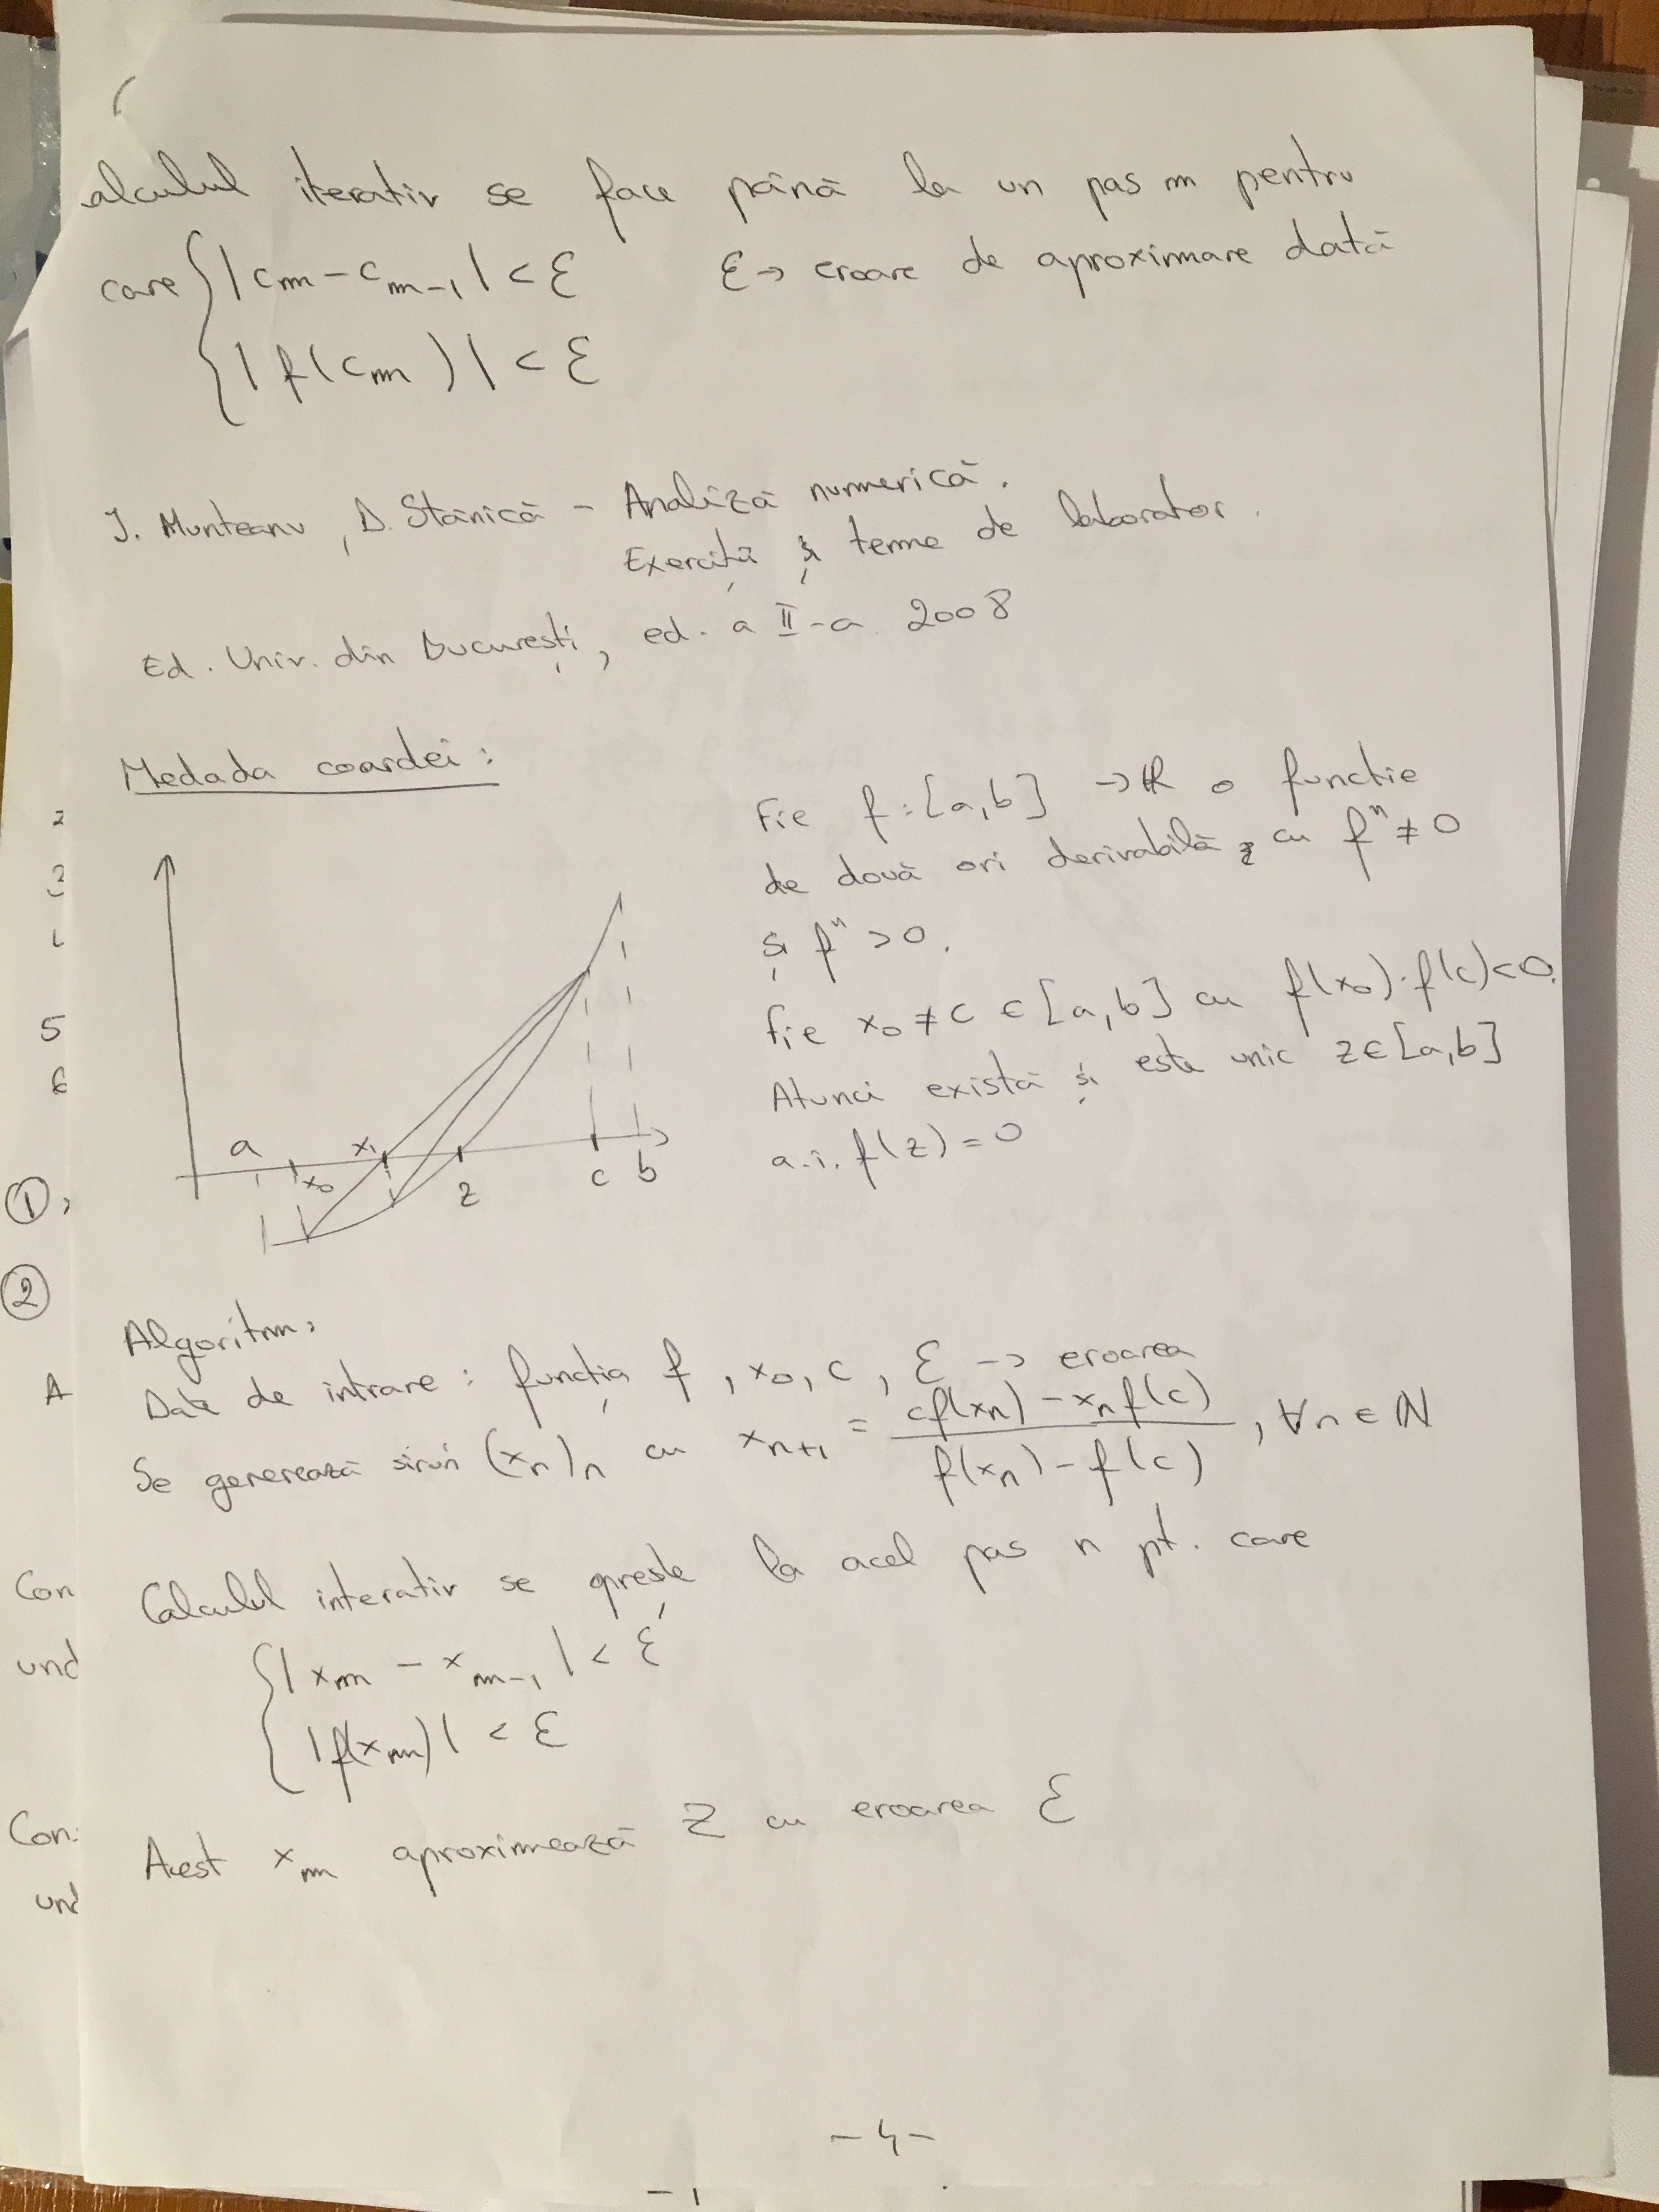 alculul iterativ se face până la un pas m pentru
care { |cm - cm-1| < ε     ε → eroare de aproximare dată
|f(cm)| < ε
I. Munteanu, D. Stănică - Analiză numerică.
Exerciții și teme de laborator.
Ed. Univ. din București, ed. a II-a 2008
Medada coardei:
Fie f:[a,b] → ℝ o functie
de două ori derivabilă, cu f'' ≠ 0
și f'' > 0.
Fie x0 ≠ c ∈ [a,b] cu f(x0)·f(c) < 0.
Atunci există și este unic z ∈ [a,b]
a.î. f(z) = 0
a x0 x1 z c b
Algoritm:
Date de intrare: funcția f, x0, c, ε → eroarea
Se generează sirun (xn)n cu xn+1 = (cf(xn) - xnf(c)) / (f(xn) - f(c)), ∀n ∈ ℕ
Calculul interativ se oprește la acel pas n pt. care
{ |xm - xm-1| < ε
|f(xm)| < ε
Acest xm aproximează z cu eroarea ε
- 4 -
2
3
5
6
①,
②
A
Con
und
Con:
und